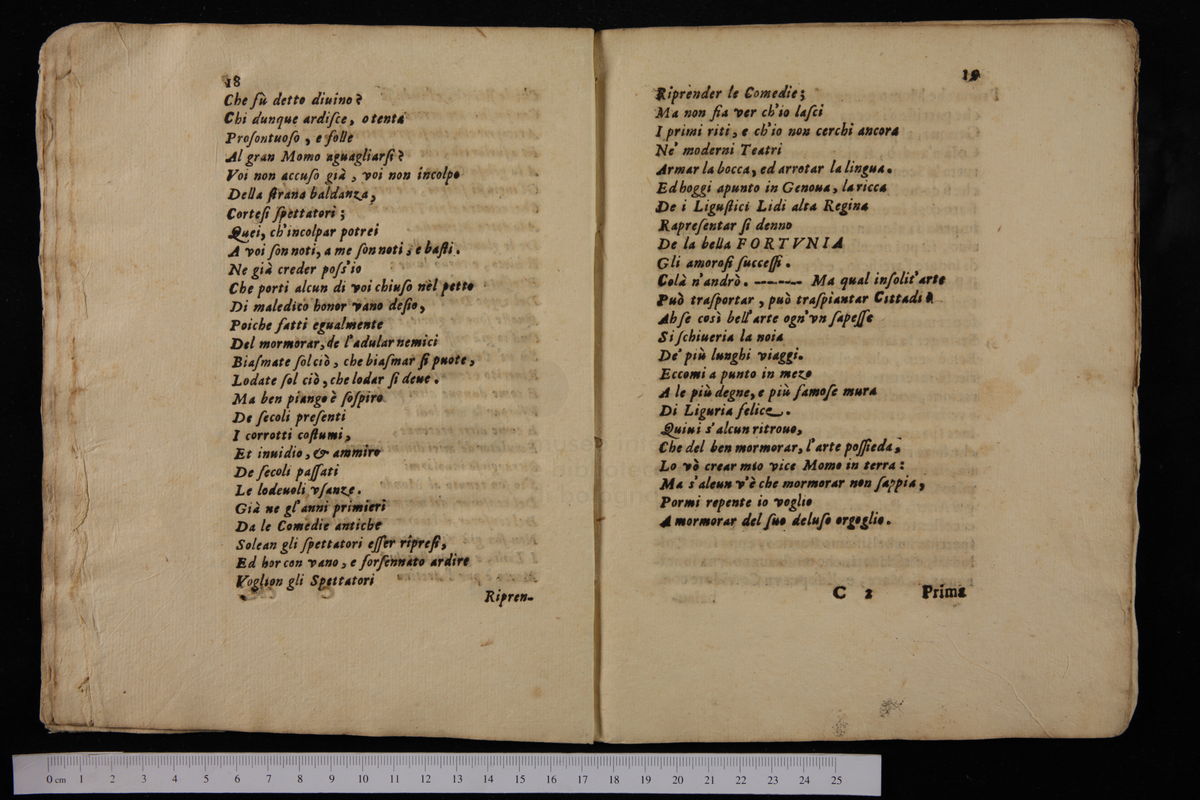 18
Che fù detto diuino?
Chi dunque ardisce, o tenta
Prosontuoso, e folle
Al gran Momo aguagliarsi?
Voi non accuso già, voi non incolpo
Della strana baldanza,
Cortesi spettatori;
Quei, ch'incolpar potrei
A voi son noti, a me son noti; e basti.
Ne già creder poss'io
Che porti alcun di voi chiuso nèl petto
Di maledico honor vano desio,
Poiche fatti egualmente
Del mormorar, de l'adular nemici
Biasmate sol ciò, che biasmar si puote,
Lodate sol ciò, che lodar si deue.
Ma ben piango è sospiro
De secoli presenti
I corrotti costumi,
Et inuidio, & ammiro
De secoli passati
Le lodeuoli vsanze.
Già ne gl'anni primieri
Da le Comedie antiche
Solean gli spettatori esser ripresi,
Ed hor con vano, e forsennato ardire
Voglion gli Spettatori
Ripren-
19
Riprènder le Comedie;
Ma non fia ver ch'io lasci
I primi riti, e ch'io non cerchi ancora
Ne' moderni Teatri
Armar la bocca, ed arrotar la lingua.
Ed hoggi apunto in Genoua, la ricca
De i Ligustici Lidi alta Regina
Rapresentar si denno
De la bella FORTVNIA
Gli amorosi successi.
Colà n'andrò. ------- Ma qual insolit'arte
Può trasportar, può traspiantar Cittadi?
Ah se così bell'arte ogn'vn sapesse
Si schiueria la noia
De' più lunghi viaggi.
Eccomi a punto in mezo
A le più degne, e più famose mura
Di Liguria felice.
Quiui s'alcun ritrouo,
Che del ben mormorar, l'arte possieda,
Lo vò crear mio vice Momo in terra:
Ma s'alcun v'è che mormorar non sappia,
Pormi repente io voglio
A mormorar del suo deluso orgoglio.
C 2 Prima
0 cm 1 2 3 4 5 6 7 8 9 10 11 12 13 14 15 16 17 18 19 20 21 22 23 24 25